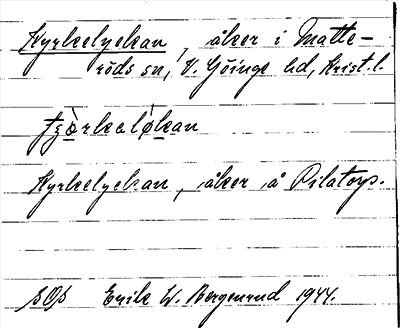 Kyrkelyckan, åker i Matte-
röds sn, V. Göinge hd, Krist. l.
Kyrkelyckan, åker å Pilatorp.
SOS Erik W. Bergenrud 1944.